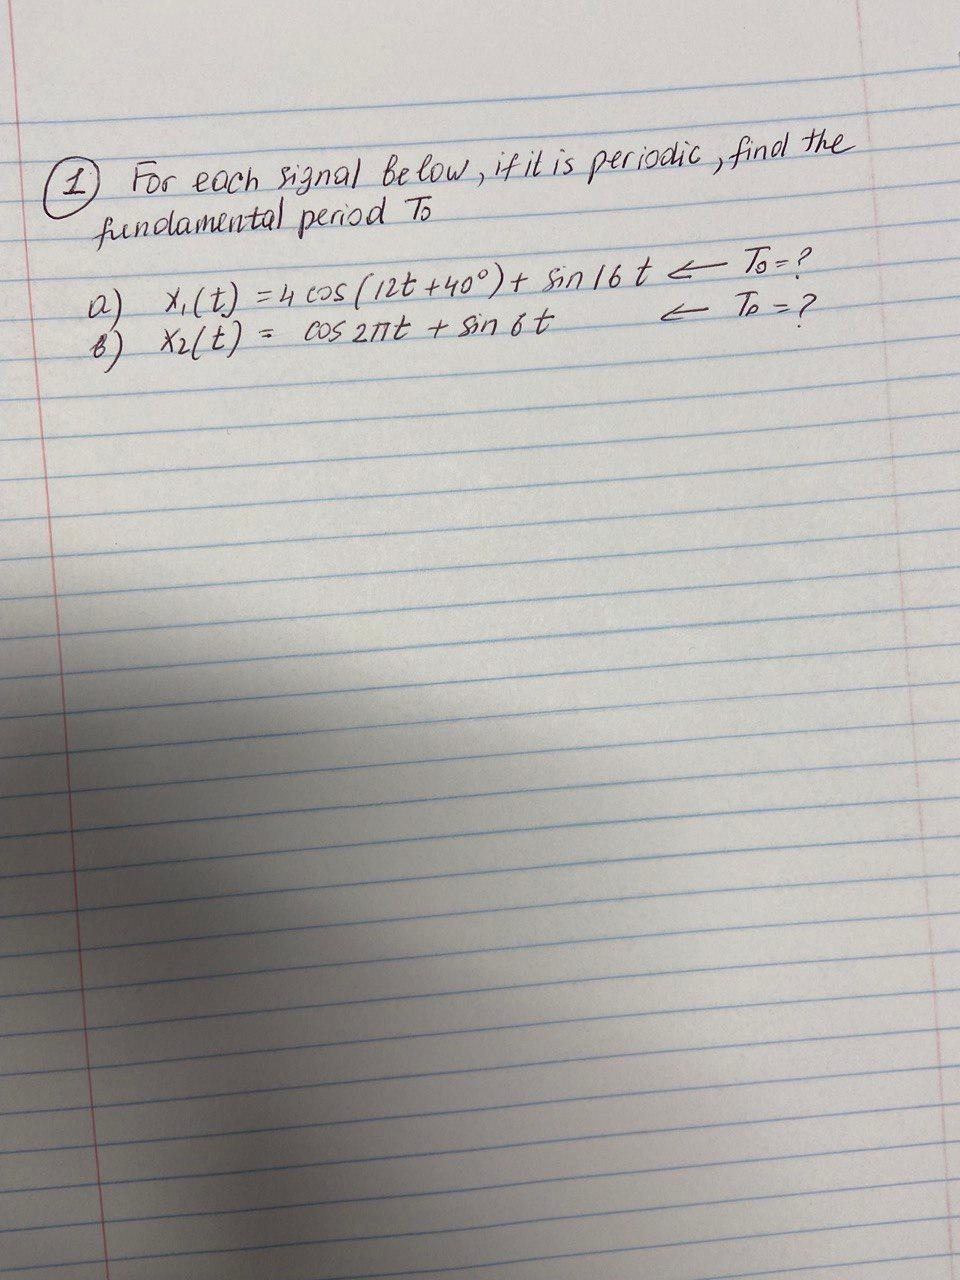 ① For each signal below, if it is periodic, find the
fundamental period T₀
a) x₁(t) = 4 cos (12t + 40°) + sin 16 t ← T₀ = ?
b) x₂(t) = cos 2πt + sin 6t ← T₀ = ?